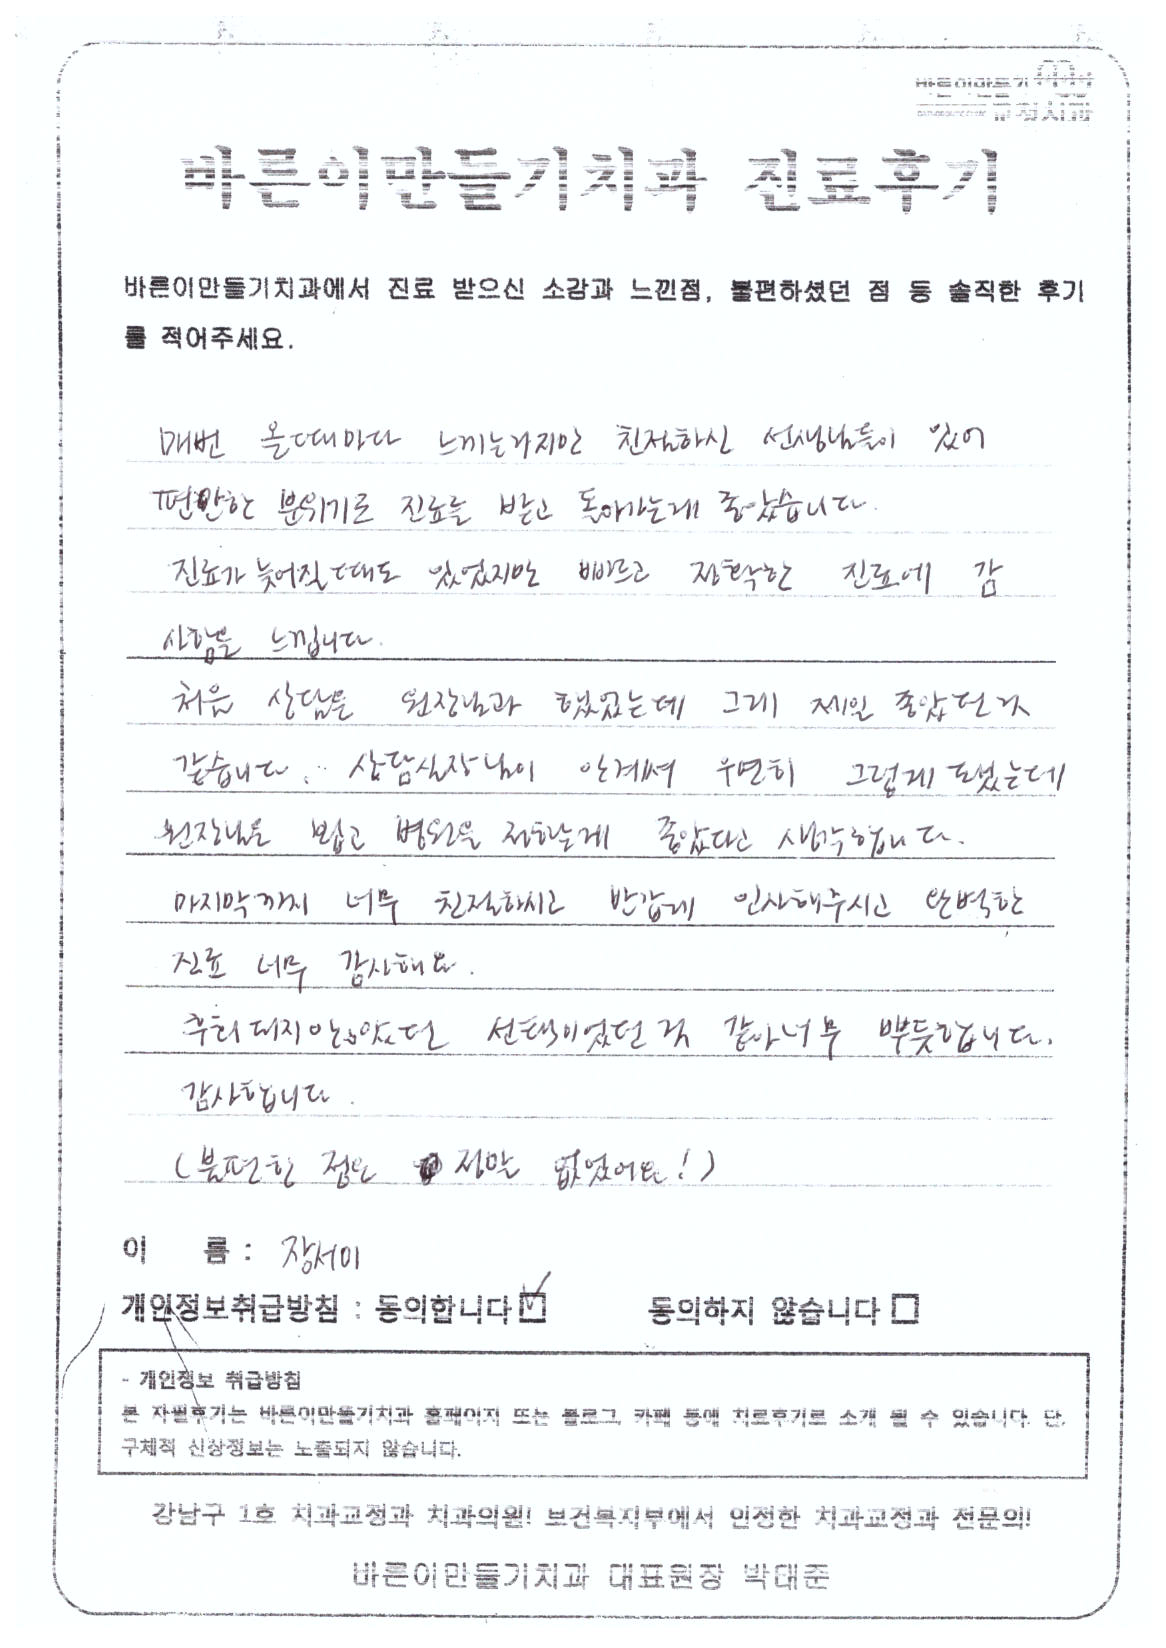 바른이만들기
교정치과
바른이만들기치과 진료후기
바른이만들기치과에서 진료 받으신 소감과 느낀점, 불편하셨던 점 등 솔직한 후기
를 적어주세요.
매번 올때마다 느끼는거지만 친절하신 선생님들이 있어
편안한 분위기로 진료를 받고 돌아가는게 좋았습니다.
진료가 늦어질 때도 있었지만 빠르고 정확한 진료에 감
사함을 느낍니다.
처음 상담을 원장님과 했었는데 그게 제일 좋았던것
같습니다. 상담실장님이 안계셔 우연히 그렇게 됐는데
원장님을 뵙고 병원을 정하는게 좋았다고 생각합니다.
마지막까지 너무 친절하시고 반갑게 인사해주시고 완벽한
진료 너무 감사해요.
후회되지않았던 선택이었던 것 같아너무 뿌듯합니다.
감사합니다.
(불편한 점은 정말 없었어요!)
이 름 : 장서미
개인정보취급방침 : 동의합니다 동의하지 않습니다
- 개인정보 취급방침
본 자필후기는 바른이만들기치과 홈페이지 또는 블로그, 카페 등에 치료후기로 소개 될 수 있습니다. 단,
구체적 신상정보는 노출되지 않습니다.
강남구 1호 치과교정과 치과의원! 보건복지부에서 인정한 치과교정과 전문의!
바른이만들기치과 대표원장 박대준